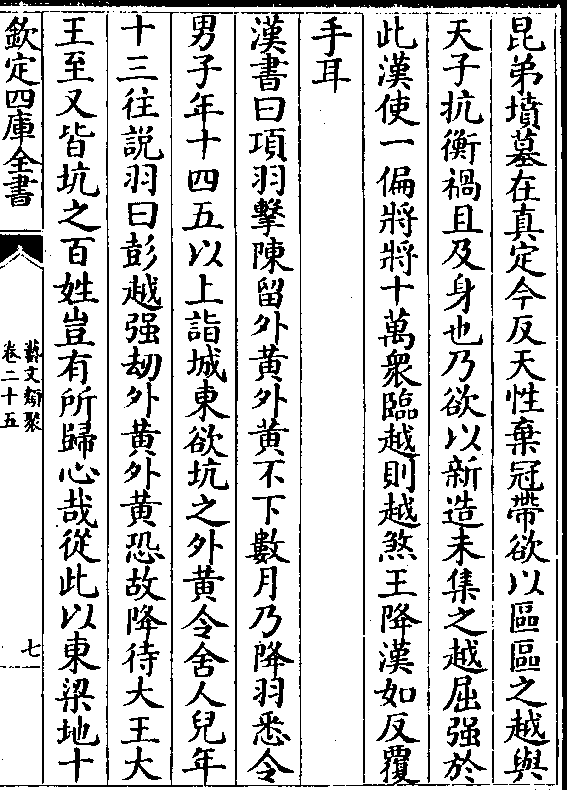 昆弟墳墓在真定今反天性棄冠帶欲以區區之越與
天子抗衡禍且及身也乃欲以新造未集之越屈强於
此漢使一偏將將十萬衆臨越則越煞王降漢如反覆
手耳
漢書曰項羽擊陳留外黄外黄不下數月乃降羽悉令
男子年十四五以上詣城東欲坑之外黄令舍人兒年
十三往説羽曰彭越强劫外黄外黄恐故降待大王大
王至又皆坑之百姓豈有所歸心哉從此以東梁地十
欽定四庫全書
藝文類聚
卷二十五
七